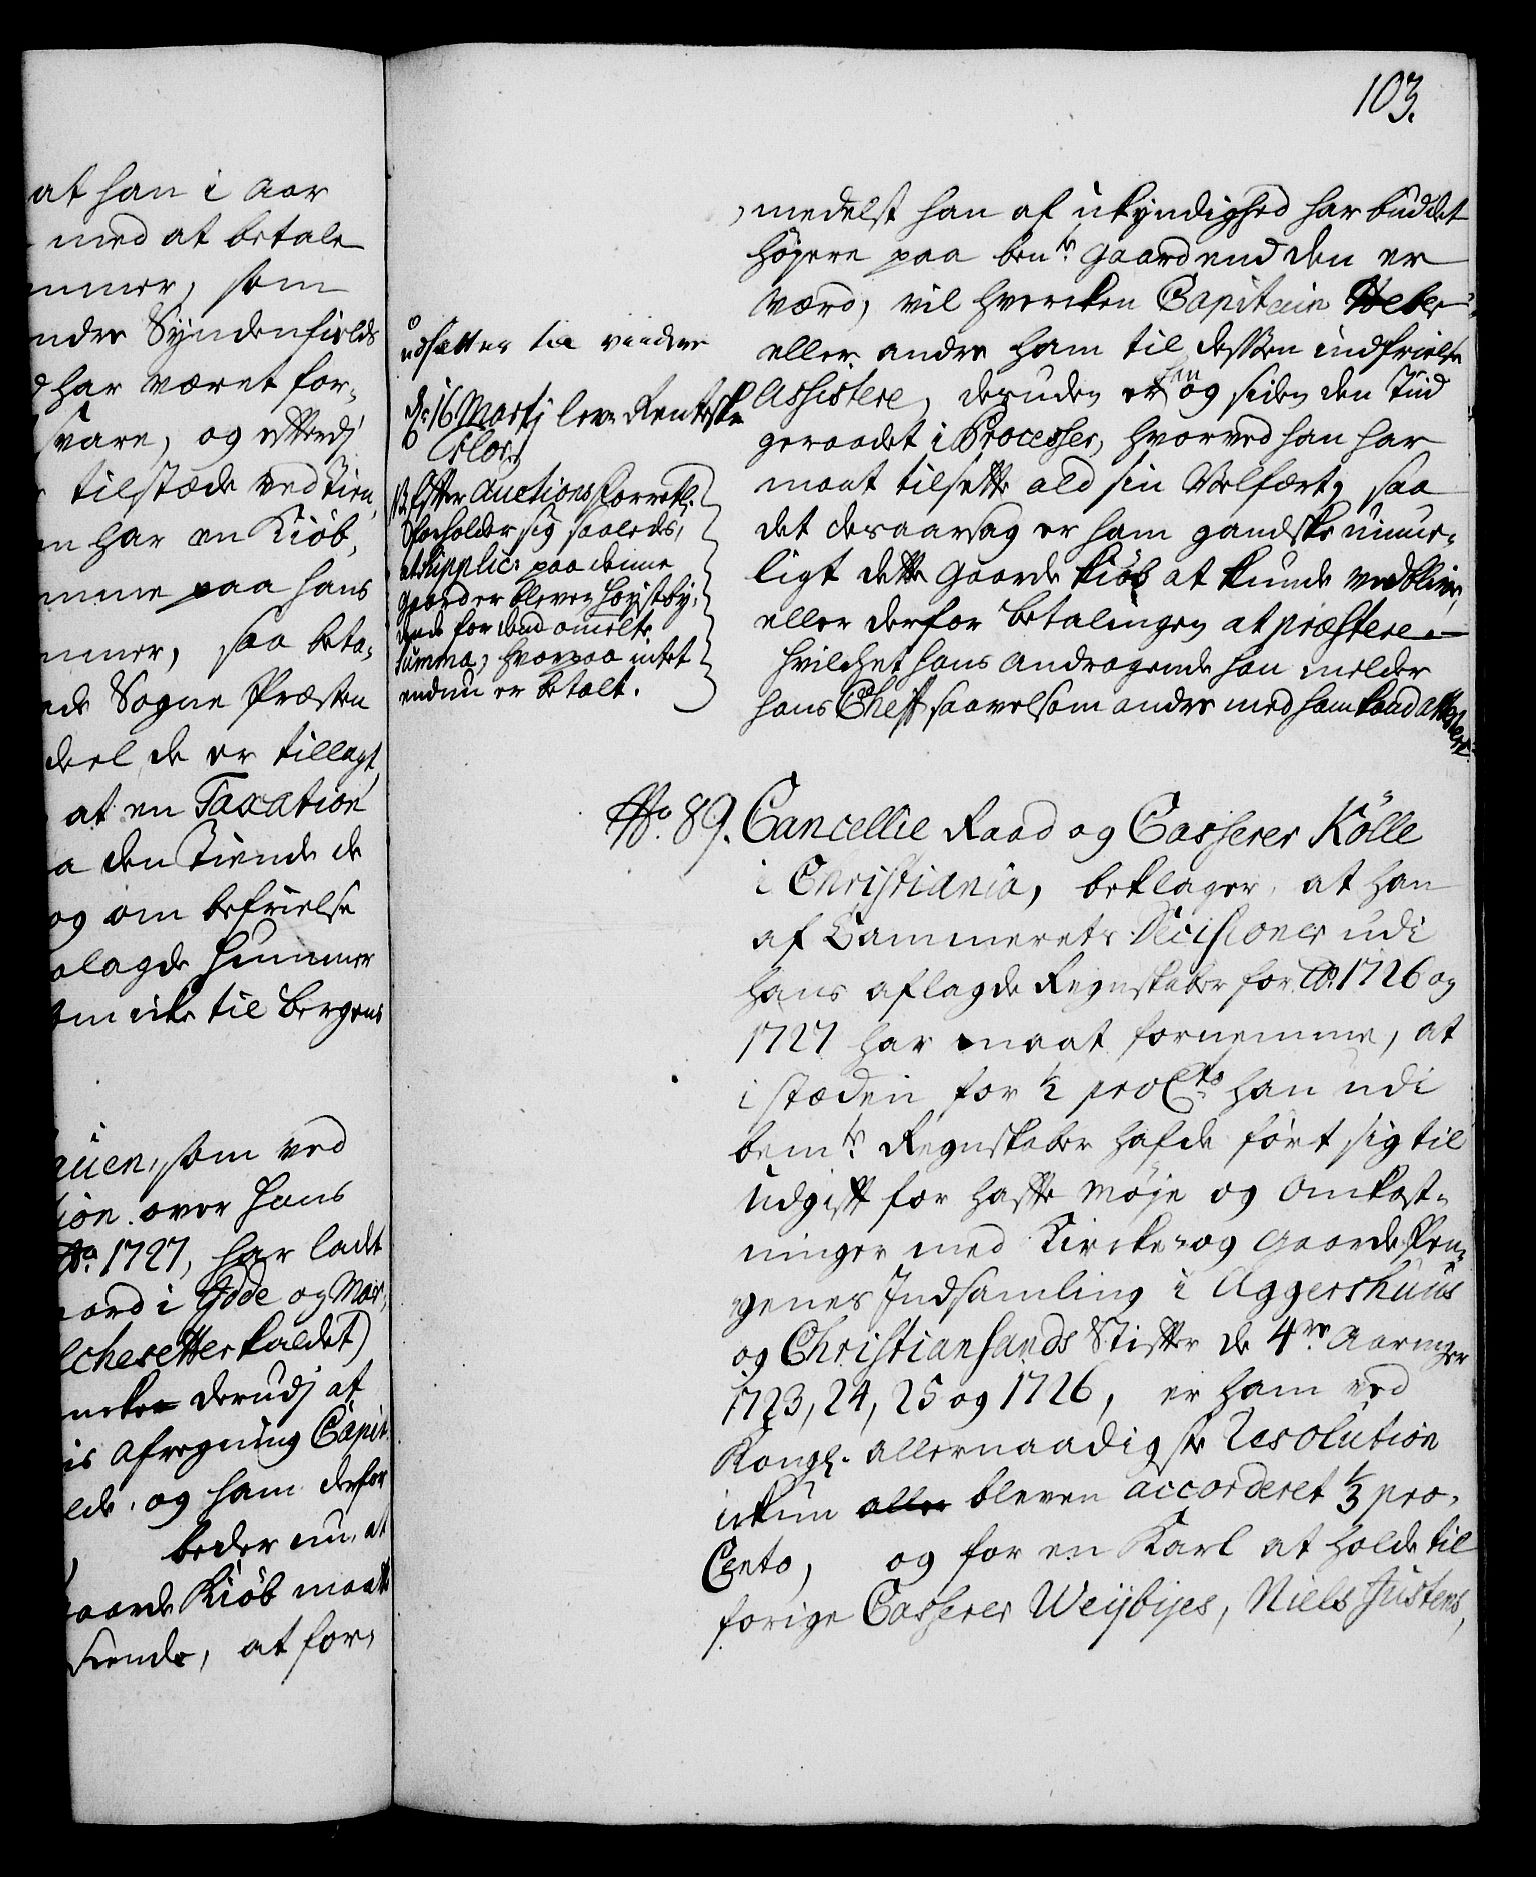 103.
at han i Aar
med at betale
mmer, som
ndre Syndenfields
har været for-
svare, og efterdj
tilstæde ved Tien
en har en Kiöb,
mme paa hans
mmer, saa beta-
ede Sogne Præsten
deel de er tillagt
at en Taxation
a den Tiende de
og om befrielse
olagde Hummer
om icke til Bergens
auen, som ved
ion over hans
Ao. 1727, har ladt
aard i Idde og Mar-
lchesetter kaldet)
ncke derudj at
is afregning Capit
lde, og ham derfor
beder nu, at
aarde Kiöb maatte
kiende, at for-
udsættes til viidere
d: 16 Martj lev. Renteskr
NB. Efter Auctions Forretn:
forholder sig saaleds,
at Supplic: paa denne
gaard er bleven höystby-
dende for dend ommelte
Summa, hvorpaa intet
endnu er betalt.
medelst han af ukyndighed har buddet
höyere paa bente. Gaard end den er
værd, vil hvercken Capitain Heber
eller andre ham til dessen indfrielse
Assistere, desuden er han og siden den Tiid
geraadet i Processer, hvorved han har
maat tilsette ald sin Velfært, saa
det desaarsag er ham gandske umue-
ligt dette Gaarde Kiöb at kunde vedblive,
eller derfor Betalingen at præstere.
hvilchet hans Andragende han melder
hans Cheff saavelsom andre med ham kand attestere.
No. 89. Cancellie Raad og Casserer Kölle
i Christiania, beklager, at han
af Cammerets Decisioner udi
hans aflagde Regnskaber for Ao. 1726 og
1727 har maat fornemme, at
i stæden for ½ proCto han udi
bemte. Regnskaber hafde fört sig til
Udgift for hafte Möje og Omkost-
ninger med Kircke- og Gaarde Pen-
genes Indsamling i Aggershuus
og Christiansands Stifter de 4re Aaringer
1723, 24, 25 og 1726, er ham ved
Kongl. allernaadigste Resolution
ickun bleven accorderet ⅓ pro
Cento, og for en Karl at holde til
forige Casserer Weijbijes, Niels Justens,